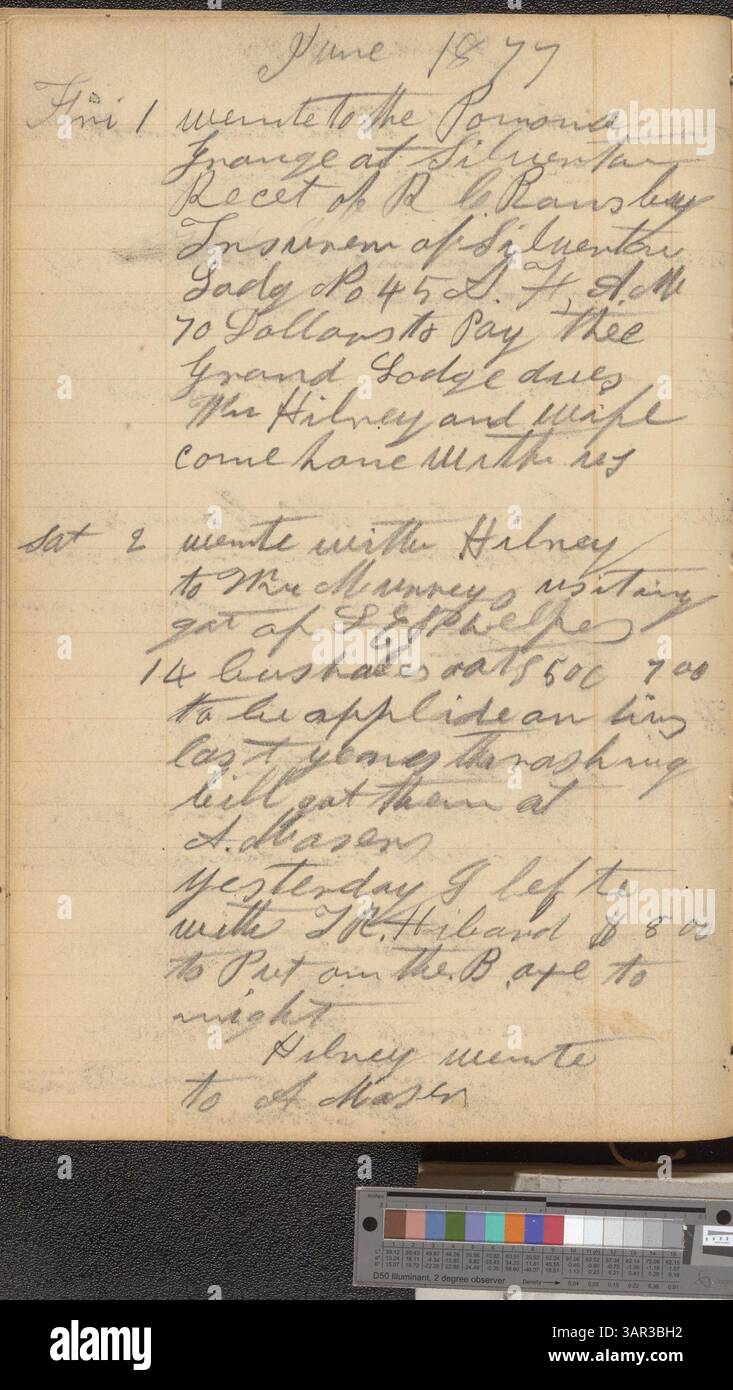 June 1877
Fri 1 wente to the Pomona
Grange at Silverton
Recet of R C Ramsbey
Insurem of Silverton
Lodg No 45 A. F, A. M
70 Dollars to Pay thee
Grand Lodge dues
Wm Hilney and wife
come home withe us
Sat 2 wente withe Hilney
to Wm Munney visiting
got of Phelps
14 bushales oats 50c 7 00
to be applide on his
last years thrashing
bill got them at
A. Masers
yesterday I lefte
with T R. Hibard $ 8 00
to Put on the B. axe to
night
Hilney wente
to A Maser
a
a
a
a
a
a
a
a
a
alamy
Inches
D50 Illuminant, 2 degree observer
Density
Image ID: 3AR3BH2
www.alamy.com